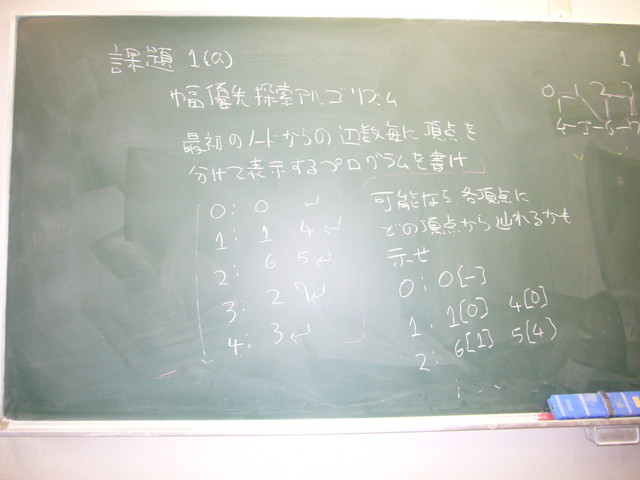 課題 1(a)
幅優先探索アルゴリズム
最初のノードからの辺数毎に頂点を
分けて表示するプログラムを書け
0: 0 ↵
1: 1 4 ↵
2: 6 5 ↵
3: 2 7 ↵
4: 3 ↵
可能なら各頂点に
どの頂点から辿れるかも
示せ
0: 0[-]
1: 1[0] 4[0]
2: 6[1] 5[4]
0 1 2 3
4-5-6-7